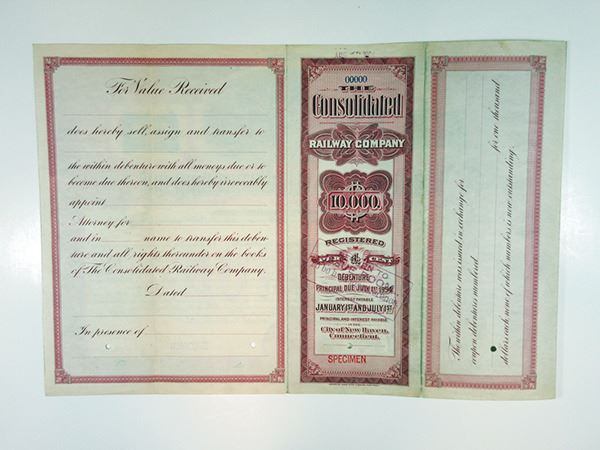 For Value Received
does hereby sell, assign and transfer to
the within debenture with all moneys due or to
become due thereon, and does hereby irrevocably
appoint
Attorney for
and in name to transfer this deben-
ture and all rights thereunder on the books
of The Consolidated Railway Company.
Dated
In presence of
00000
THE
Consolidated
RAILWAY COMPANY
10,000.
REGISTERED
CENT
DEBENTURE
PRINCIPAL DUE JULY 1ST
INTEREST PAYABLE
JANUARY 1ST AND JULY 1ST
PRINCIPAL AND INTEREST PAYABLE
IN THE
City of New Haven,
Connecticut.
SPECIMEN
The within debenture was issued in exchange for
coupon debentures numbered for one thousand
dollars each, none of which numbers is now outstanding.